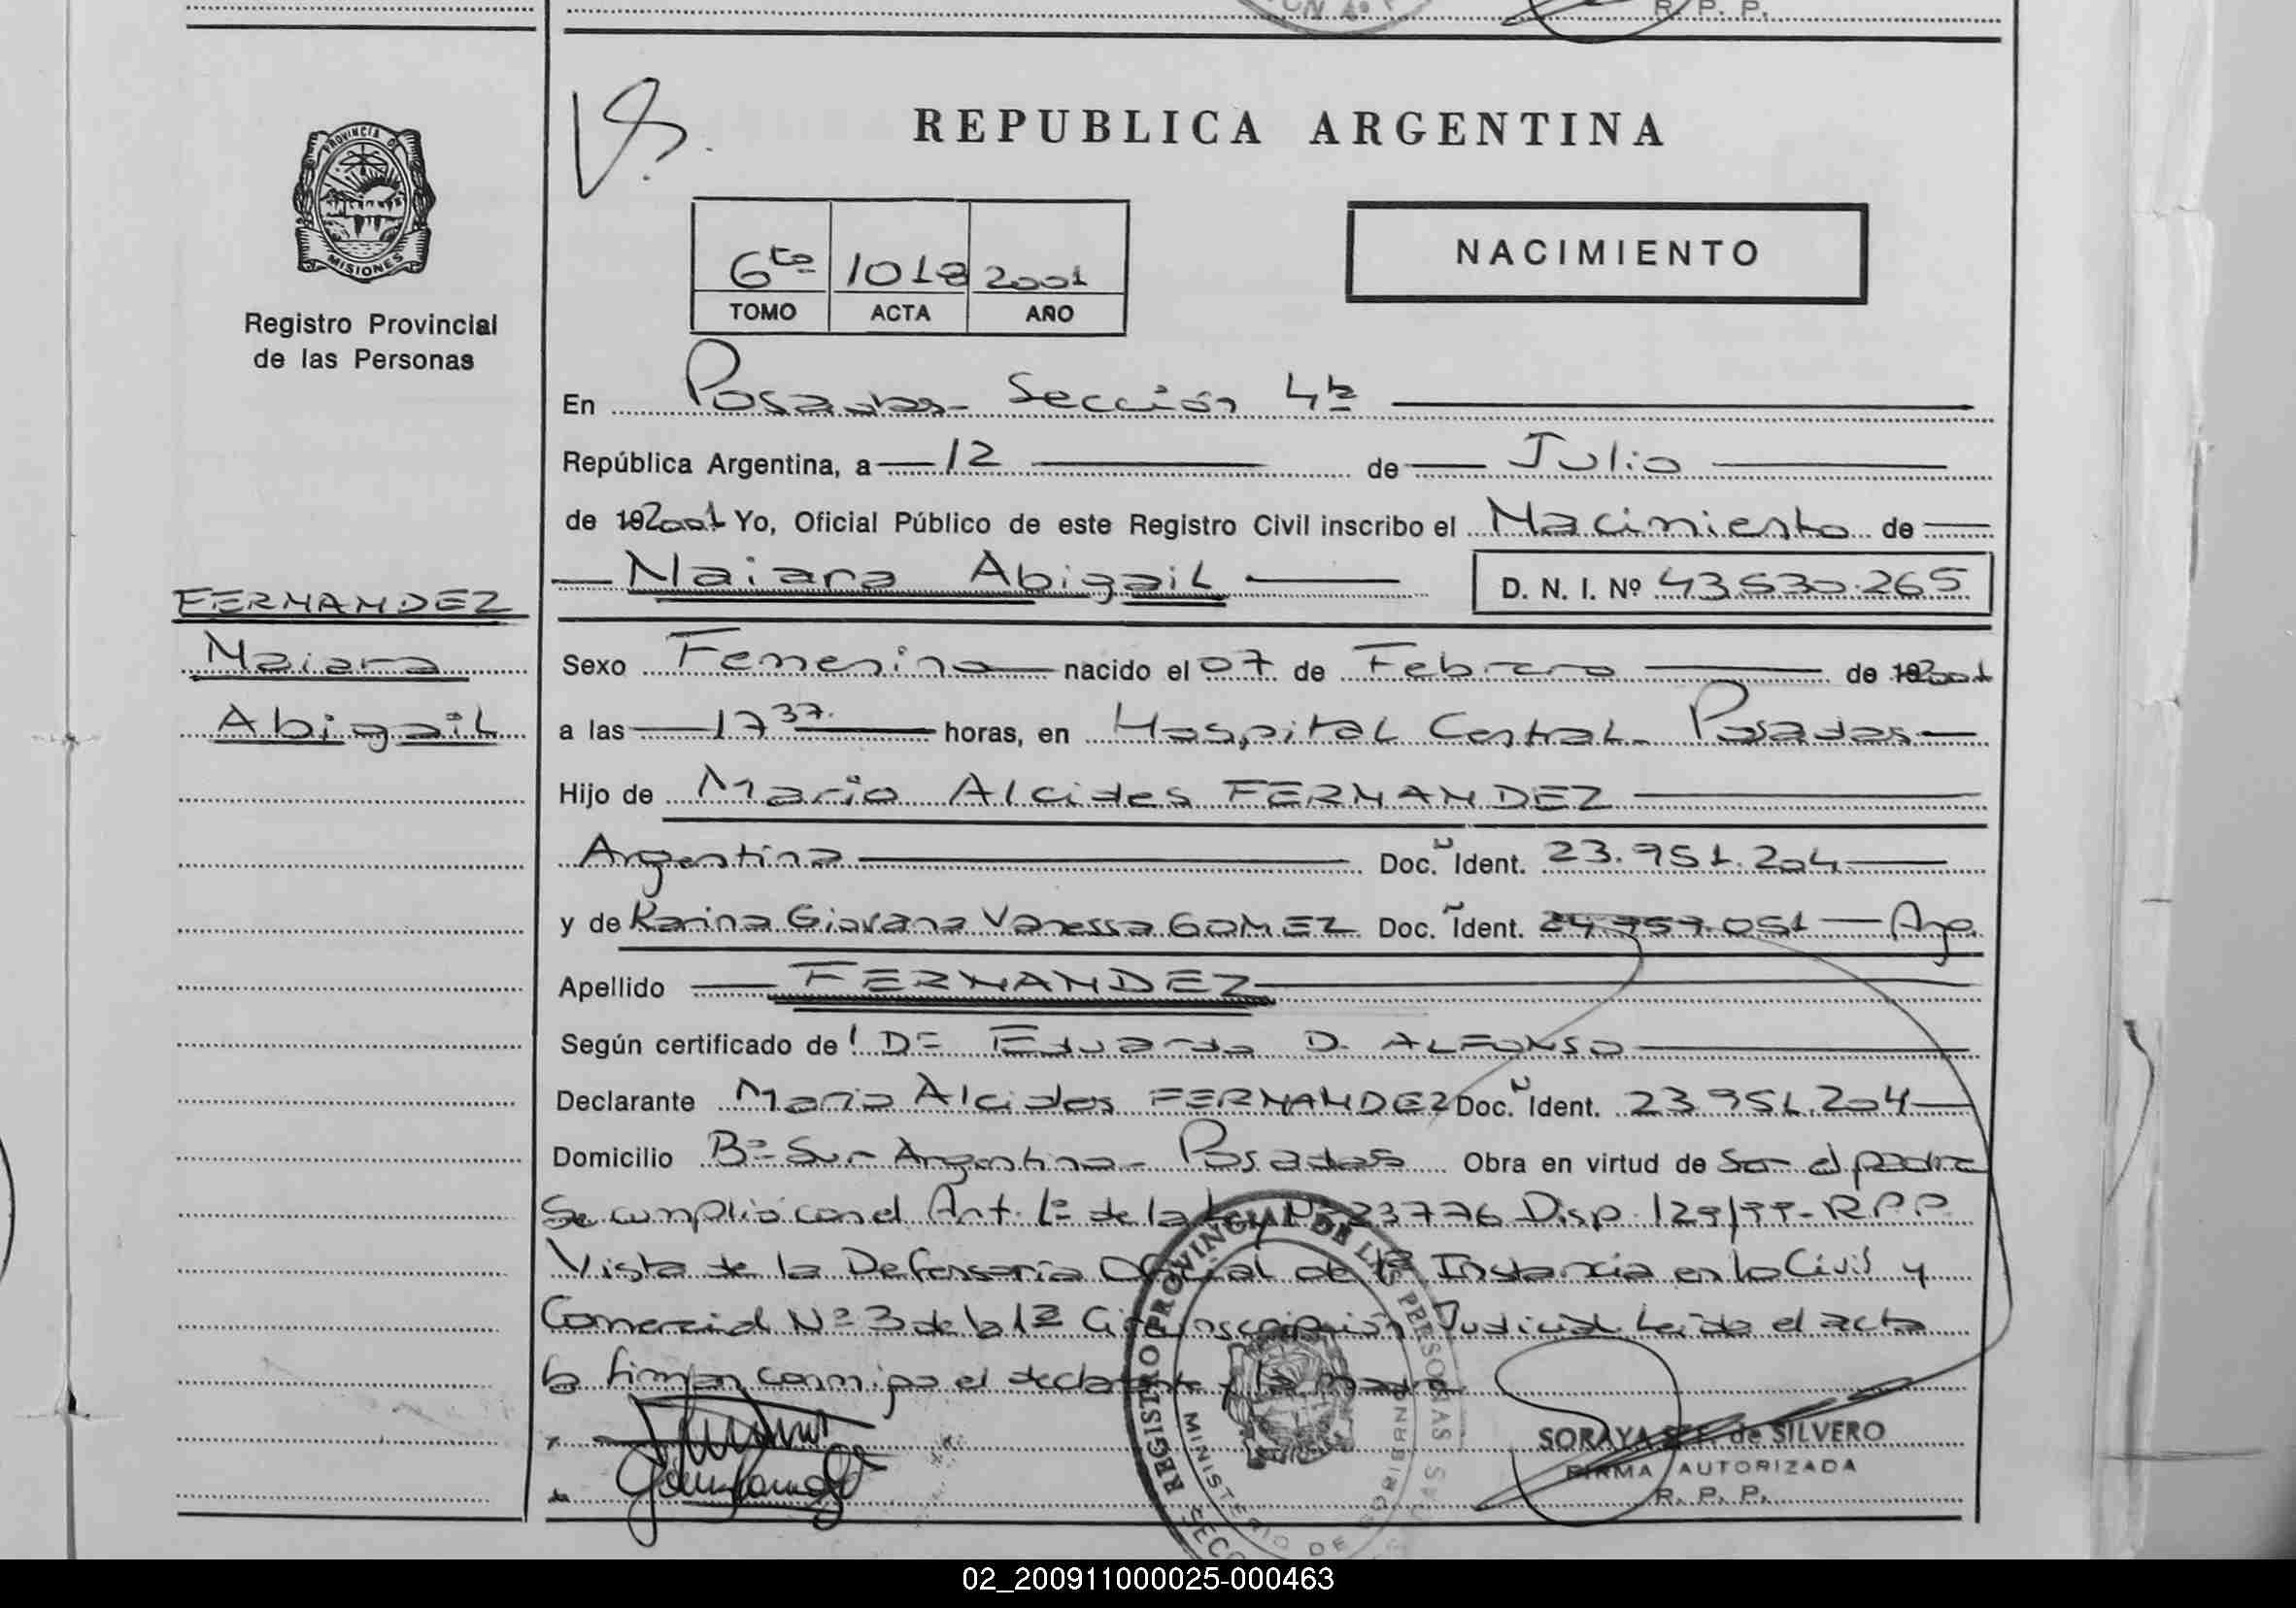 R. P. P.
PROVINCIA DE
MISIONES
Registro Provincial
de las Personas
FERNANDEZ
Maiara
Abigail
REPUBLICA ARGENTINA
6to 1018 2001
TOMO ACTA AÑO
NACIMIENTO
En Posadas- Sección 4ta
República Argentina, a 12 de Julio
de 192001 Yo, Oficial Público de este Registro Civil inscribo el Nacimiento de
Maiara Abigail D. N. I. Nº 43.530.265
Sexo Femenino nacido el 07 de Febrero de 192001
a las 17 37. horas, en Hospital Central- Posadas
Hijo de Mario Alcides FERNANDEZ
Argentina Doc. Ident. 23.951.204
y de Karina Giovana Vanessa GOMEZ Doc. Ident. 24.959.051 Arg.
Apellido FERNANDEZ
Según certificado de Dr Eduardo D. ALFONSO
Declarante Mario Alcides FERNANDEZ Doc. Ident. 23.951.204
Domicilio Bº Sur Argentino- Posadas Obra en virtud de Ser el padre
Se cumplio con el Art. 1º de la Ley Nº 23776 Disp. 129/99- R.P.P.
Vista de la Defensoria Oficial de 1ª Instancia en lo Civil y
Comercial Nº 3 de la 1ª Circunscripción Judicial. Leida el acta
la firman conmigo el declarante y la madre
REGISTRO PROVINCIAL DE LAS PERSONAS
MINISTERIO DE GOBIERNO
SORAYA de SILVERO
FIRMA AUTORIZADA
R. P. P.
02_200911000025-000463